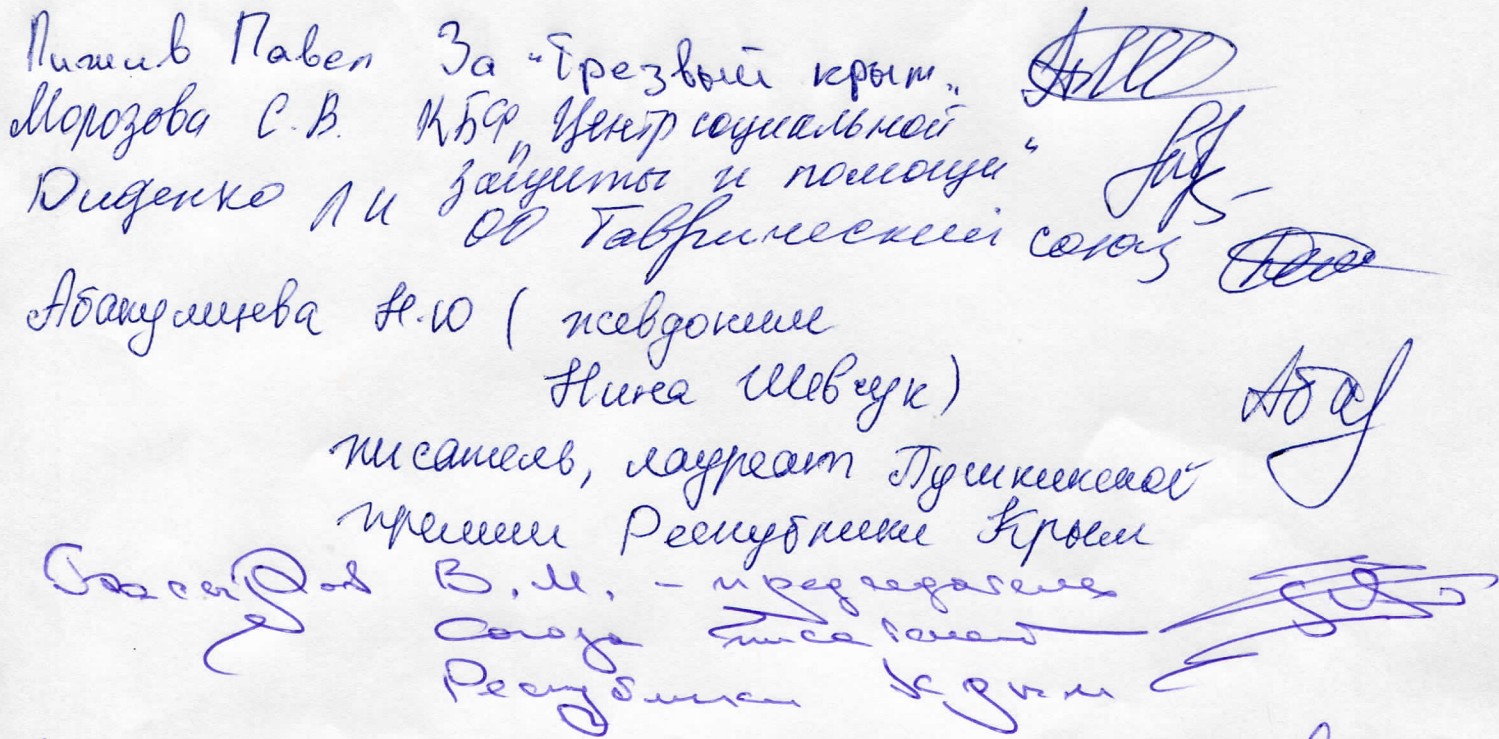 Павел За "Трезвый крым"
Морозова С.В. КБФ "Центр социальной
защиты и помощи"
Диденко Л И ОО Таврический союз
Абакумцева Н.Ю ( псевдоним
Нина Шевчук)
писатель, лауреат Пушкинской
премии Республики Крым
В.М. - председатель
Союза писателей
Республики Крым